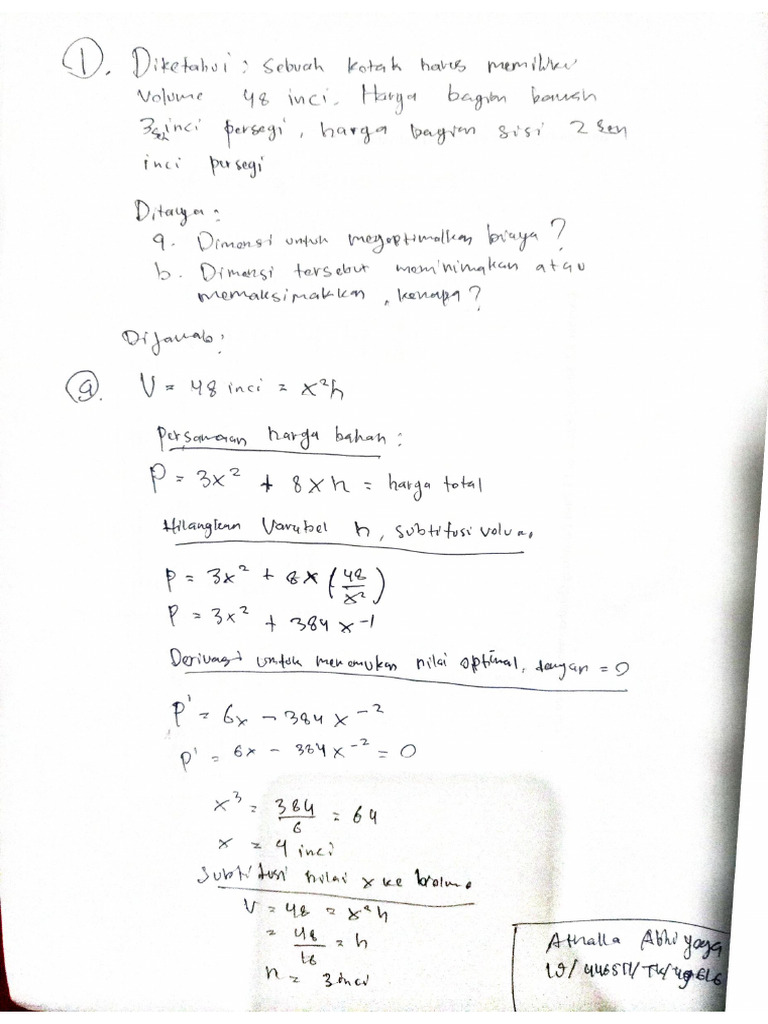 1. Diketahui : Sebuah kotak harus memiliku
Volume 48 inci. Harga bagian bawah
3 sen inci persegi, harga bagian sisi 2 sen
inci persegi
Ditanya :
a. Dimensi untuk megoptimalkan biaya ?
b. Dimensi tersebut meminimakan atau
memaksimakkan, kenapa ?
Dijawab :
a. V = 48 inci = x²h
Persamaan harga bahan :
P = 3x² + 8xh = harga total
Hilangkan Variabel h, subtitusi volume
P = 3x² + 8x (48/x²)
P = 3x² + 384 x⁻¹
Derivasi untuk menemukan nilai optimal, dengan = 0
P' = 6x - 384 x⁻²
P' = 6x - 384x⁻² = 0
x³ = 384/6 = 64
x = 4 inci
Subtitusi nilai x ke volume
V = 48 = x²h
= 48/16 = h
h = 3 inci
Athalla Abhiyoga